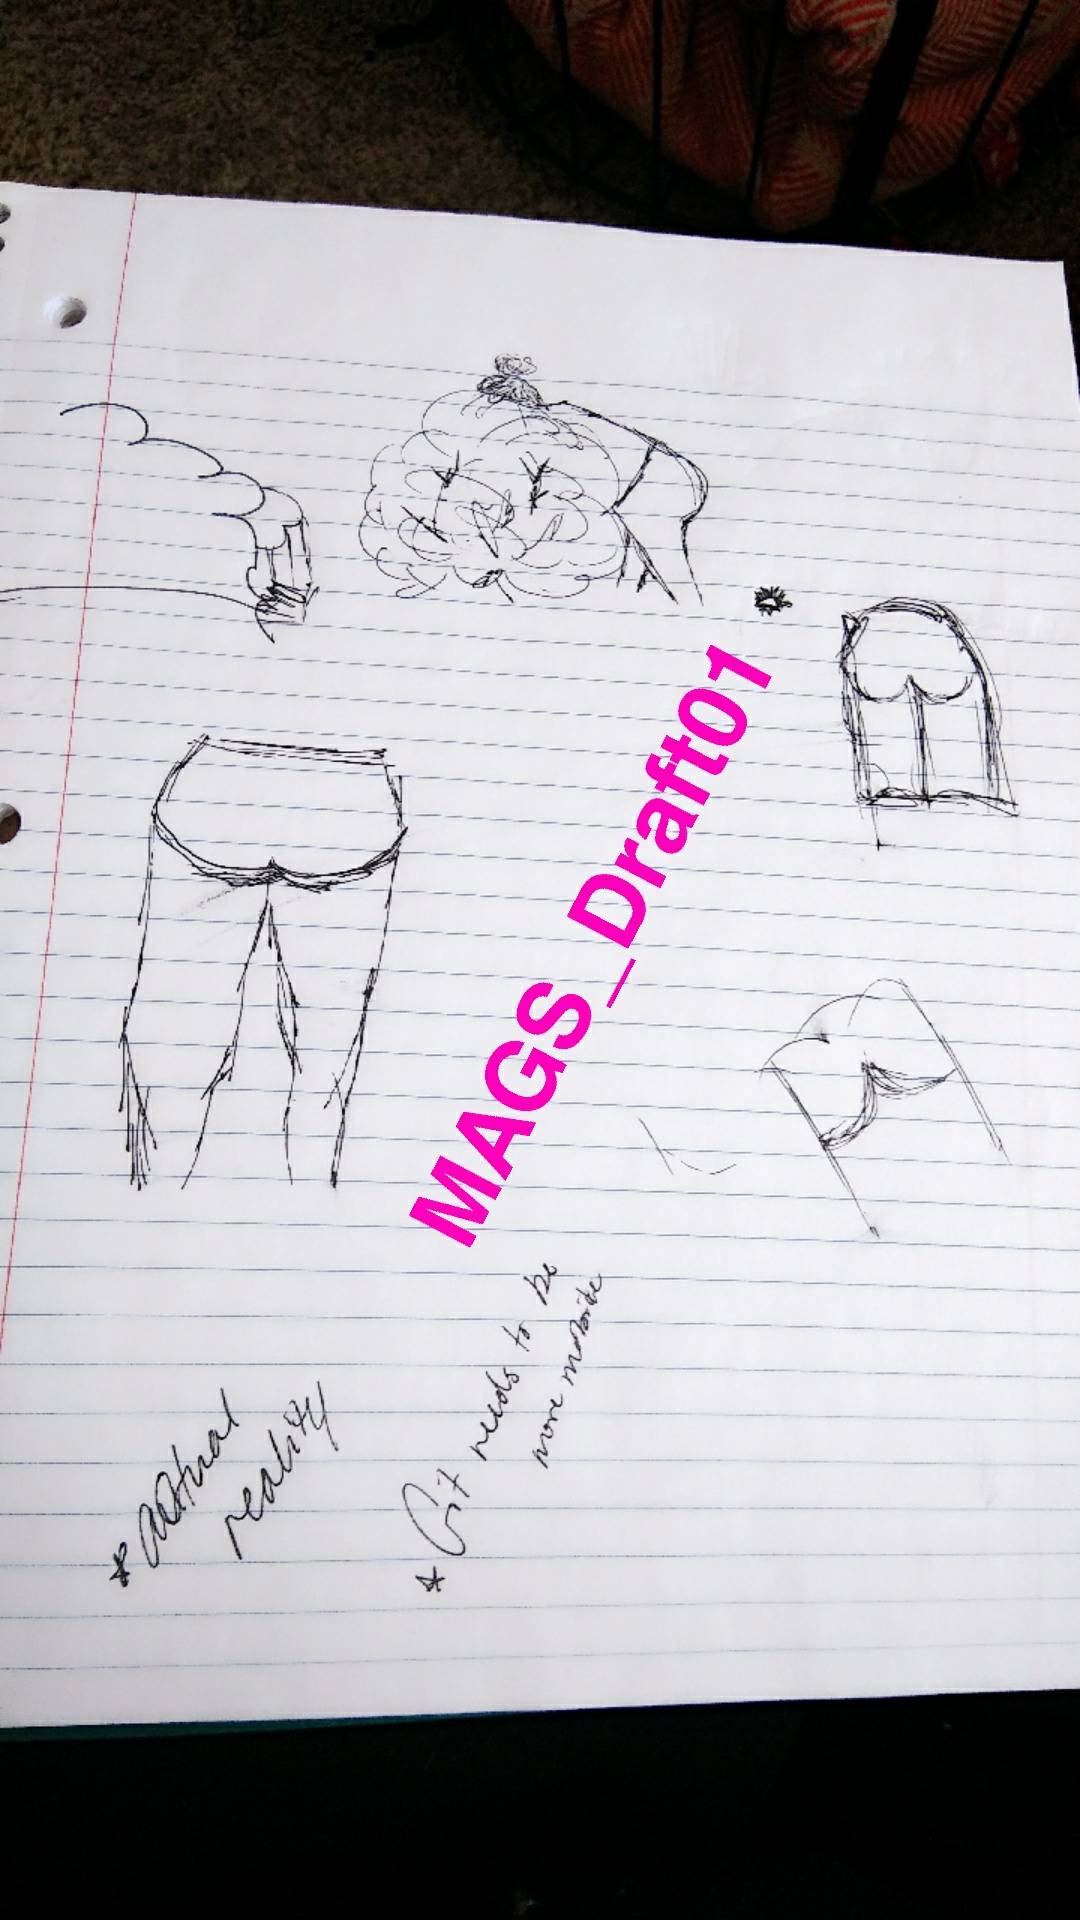 MAGS_Draft01
* actual
reality
* Git needs to be
more